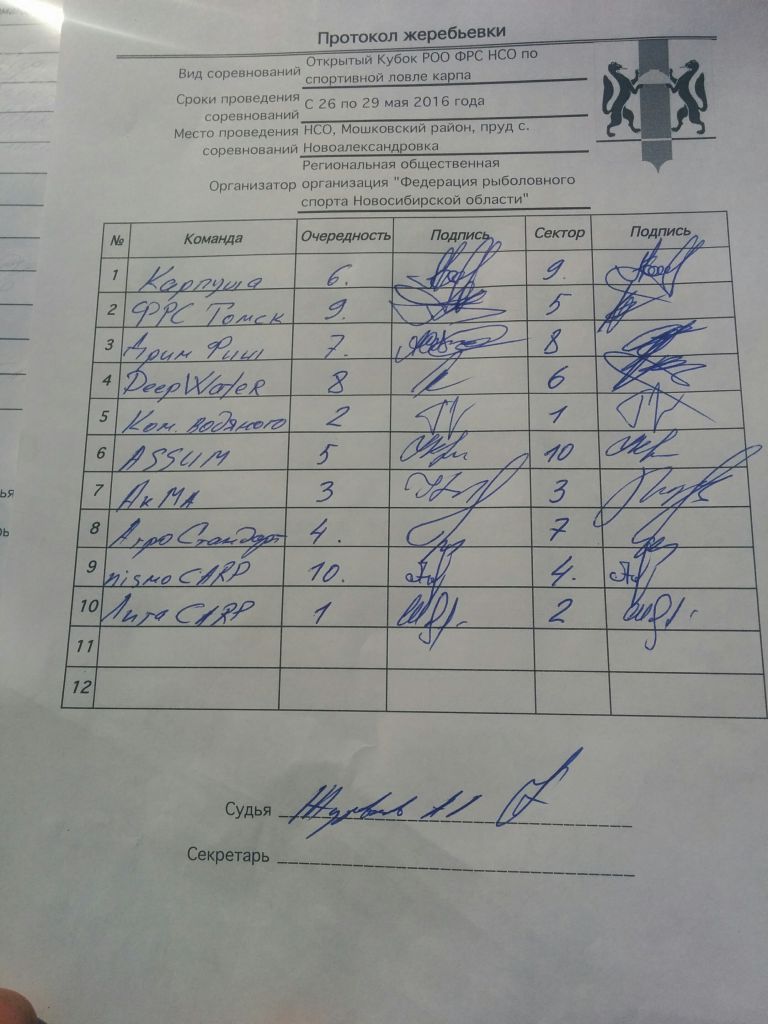 Протокол жеребьевки
Вид соревнований Открытый Кубок РОО ФРС НСО по
спортивной ловле карпа
Сроки проведения
соревнований С 26 по 29 мая 2016 года
Место проведения НСО, Мошковский район, пруд с.
соревнований Новоалександровка
Региональная общественная
Организатор организация "Федерация рыболовного
спорта Новосибирской области"
№ Команда Очередность Подпись Сектор Подпись
1 Карпуша 6. 9.
2 ФРС Томск 9. 5
3 Дрим Фиш 7. 8
4 DeepWater 8 6
5 Ком. водяного 2 1
6 ASSUM 5 10
7 АкМА 3 3
8 АгроСтандарт 4. 7
9 nismoCARP 10. 4.
10 ЛигаCARP 1 2
11
12
Судья
Секретарь